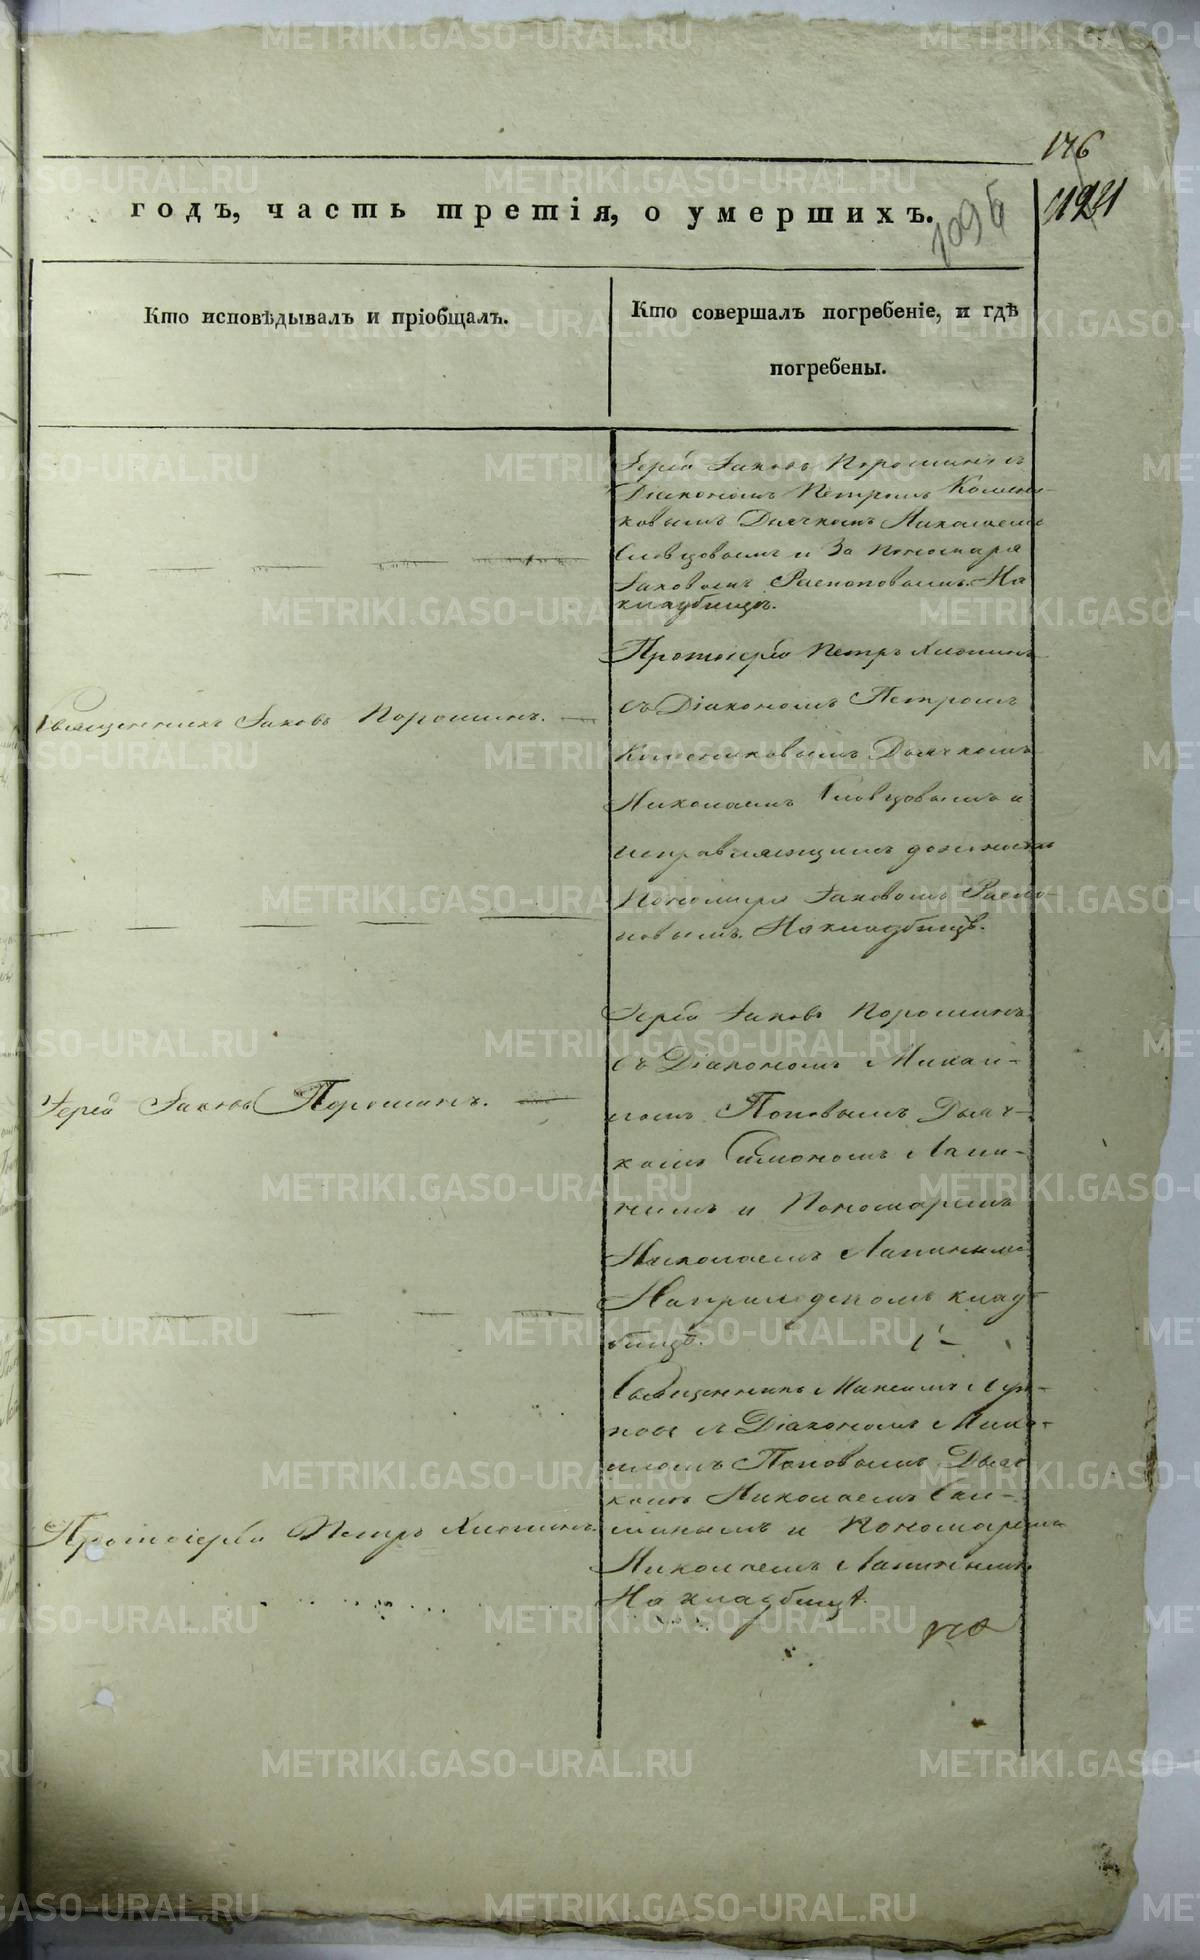 176
годъ, часть третія, о умершихъ.
Кто исповѣдывалъ и пріобщалъ.
Кто совершалъ погребеніе, и гдѣ
погребены.
Іерей Іаковъ Порошинъ съ
Діакономъ Петромъ Камен-
ковымъ Дьячкомъ Николаемъ
Словцовымъ и За пономаря
Іаковомъ Распоповымъ. На
кладбищѣ.
Священникъ Іаковъ Порошинъ.
Протоіерей Петръ Хлопинъ
съ Діакономъ Петромъ
Дьячкомъ
Николаемъ Словцовымъ и
исправляющимъ должность
Пономаря Іаковомъ Распо-
повымъ. На кладбищѣ.
Іерей Іаковъ Порошинъ.
Іерей Іаковъ Порошинъ
съ Діакономъ Михаи-
ломъ Поповымъ Дьяч-
комъ Симономъ Лапи-
нымъ и Пономаремъ
Николаемъ Лапинымъ
На приходскомъ клад-
бищѣ.
Протоіерей Петръ Хлопинъ.
Священникъ Максимъ
съ Діакономъ Миха-
иломъ Поповымъ Дьяч-
комъ Николаемъ
и Пономаремъ
Николаемъ Лапинымъ
На кладбищѣ.
METRIKI.GASO-URAL.RU